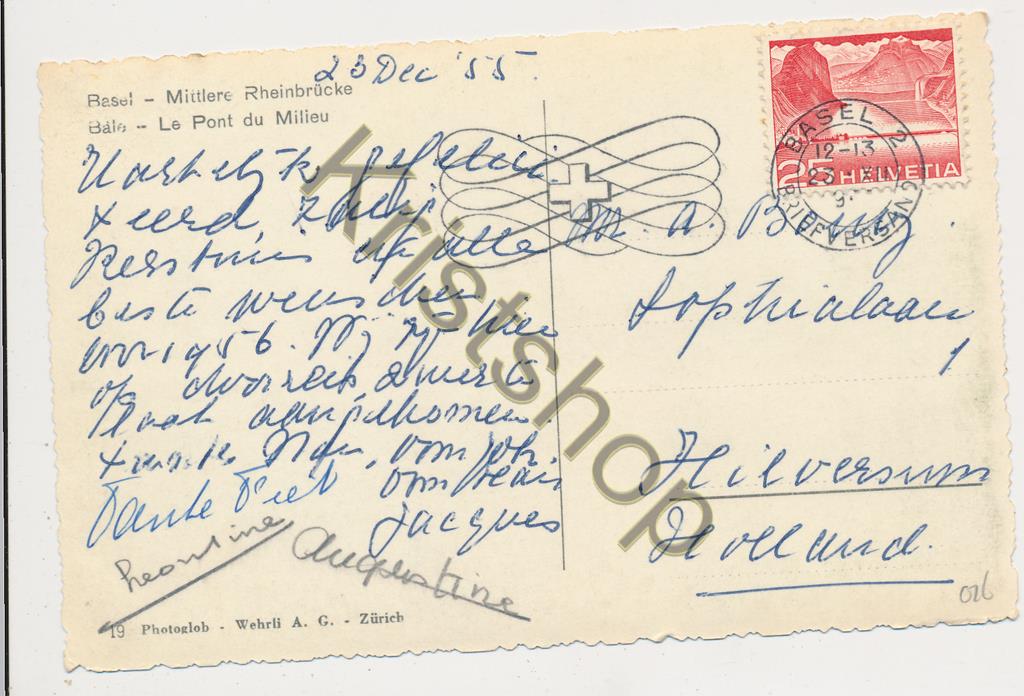 23 Dec '55.
Basel - Mittlere Rheinbrücke
Bâle - Le Pont du Milieu
Hartelijk gefeliciteerd, zalig
Kerstmis en alle
beste wenschen
voor 1956. Wij zijn hier
op doorreis
aangekomen.
Tante, oom Joh.
Tante Piet oom
Jacques
Leontine Augustine
19 Photoglob - Wehrli A. G. - Zürich
BASEL 2
12-13
23. XII
BRIEFVERSAND
25 HELVETIA
M. A.
Sophialaan
1
Hilversum
Holland.
026
Kristshop